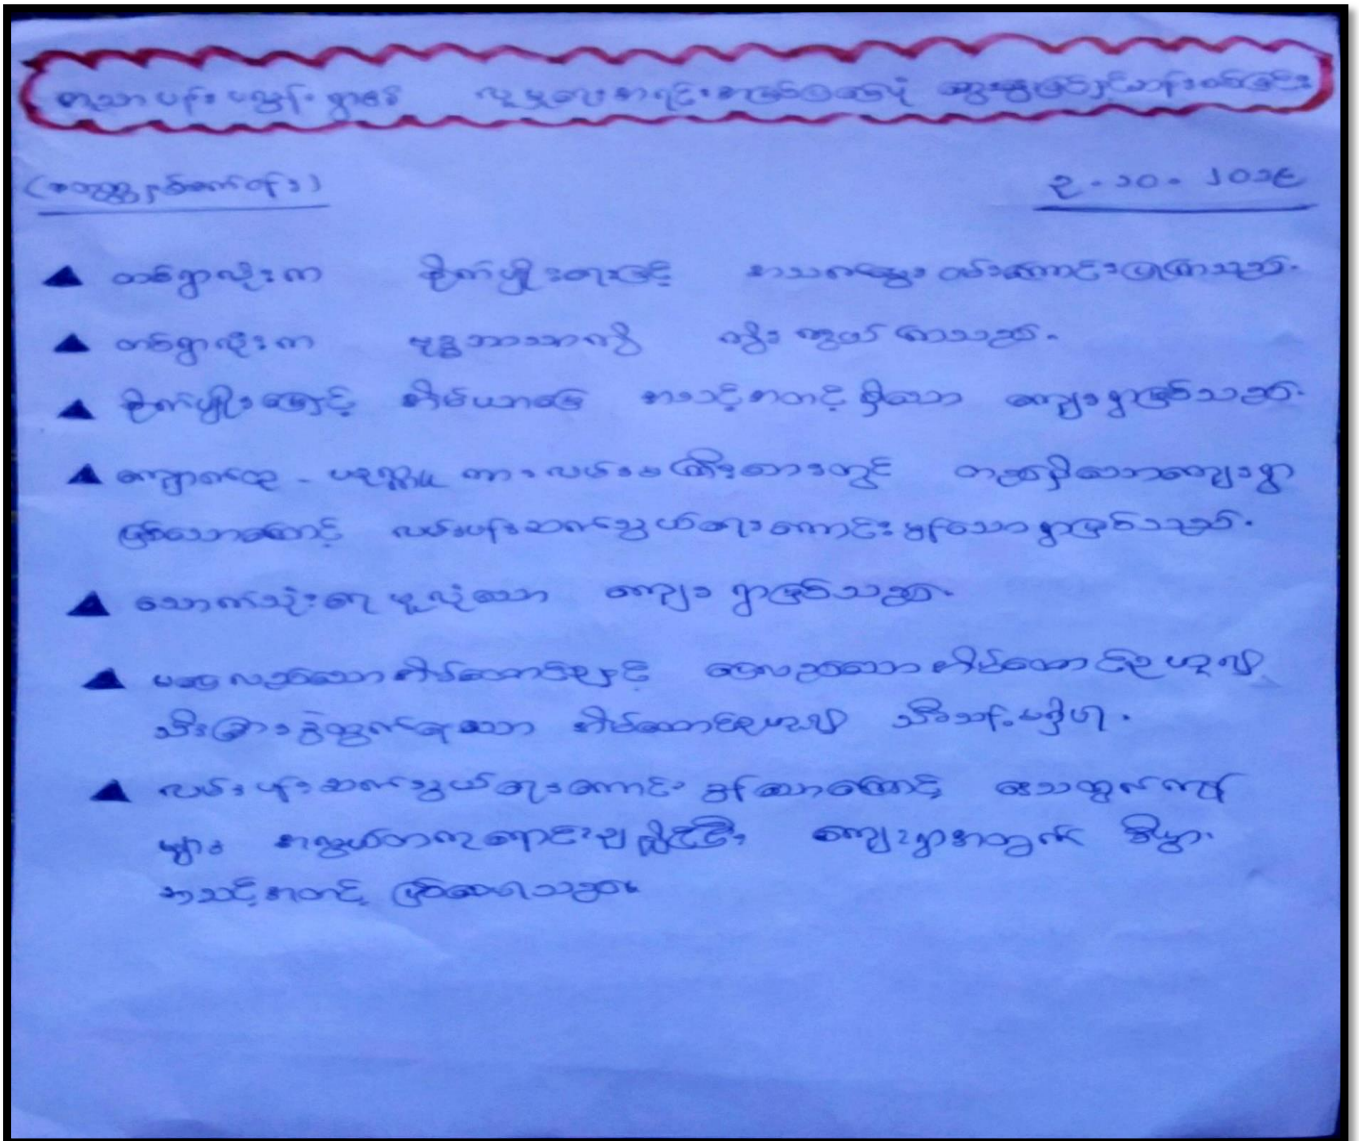 လူမှုရေးအရင်းအမြစ်မြေပုံ ဆွေးနွေးခြင်းနှင့်ဆန်းစစ်ခြင်း
၃-၁၀-၂၀၁၉
▲ တစ်ရွာလုံးက စိုက်ပျိုးရေးဖြင့် အသက်မွေးဝမ်းကျောင်းပြုကြသည်။
▲ တစ်ရွာလုံးက ဗုဒ္ဓဘာသာကို ကိုးကွယ်ကြသည်။
▲ စိုက်ပျိုးမြေနှင့် အိမ်ယာမြေ အသင့်အတင့်ရှိသော ကျေးရွာဖြစ်သည်။
▲ ကျောက်ထု - ကားလမ်းမကြီးဘေးတွင် တည်ရှိသောကျေးရွာ
ဖြစ်သောကြောင့် လမ်းပန်းဆက်သွယ်ရေးကောင်းမွန်သောရွာဖြစ်သည်။
▲ သောက်သုံးရေဖူလုံသော ကျေးရွာဖြစ်သည်။
▲ မပြေလည်သောအိမ်ထောင်စုနှင့် ပြေလည်သောအိမ်ထောင်စုဟူ၍
သီးခြားခွဲထွက်နေသော အိမ်ထောင်စုဟူ၍ သီးသန့်မရှိပါ။
▲ လမ်းပန်းဆက်သွယ်ရေးကောင်းမွန်သောကြောင့် ဒေသထွက်ကုန်
များ အလွယ်တကူရောင်းချနိုင်ပြီး ကျေးရွာအတွက် စီးပွား
အသင့်အတင့် ဖြစ်စေပါသည်။